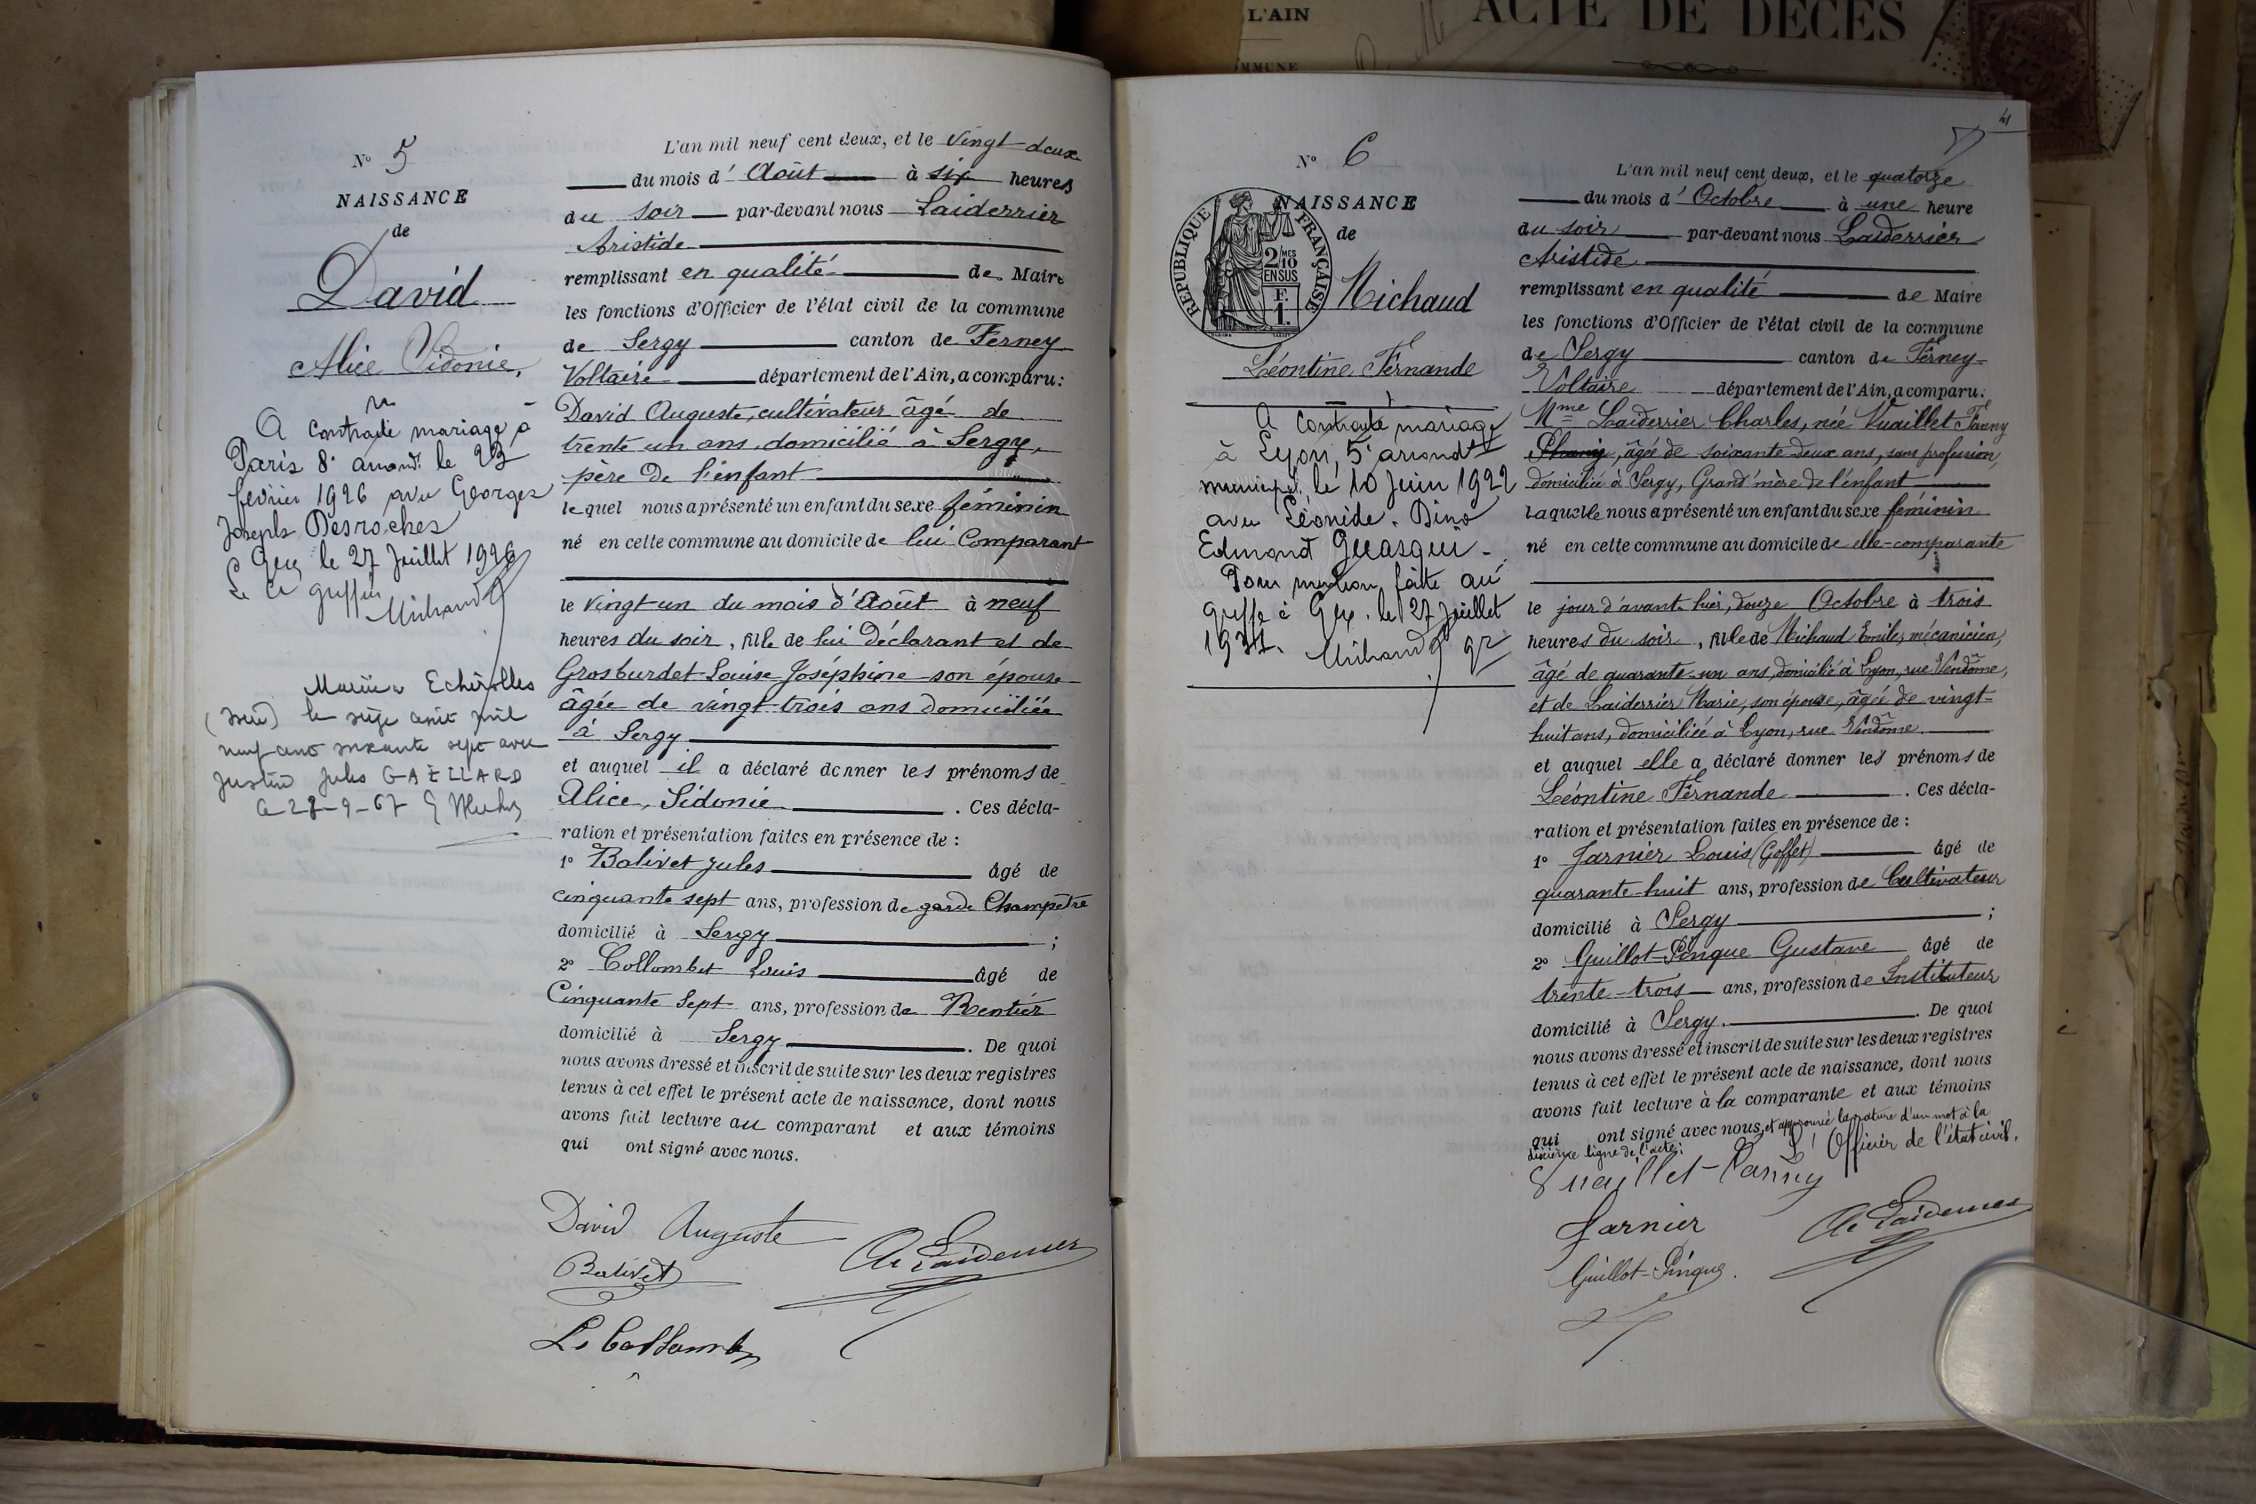 L'AIN
ACTE DE DÉCÈS
MMUNE
N° 5
NAISSANCE
de
David
Alice Sidonie,
A contracté mariage à
Paris 8e arrondt le 23
février 1926 avec Georges
Joseph Desroches
Gex le 27 Juillet 1926
Le greffier
Michaud
Mariée à Echirolles
(Isère) le seize août mil
neuf cent soixante sept avec
Justin Jules GAILLARD
L'an mil neuf cent deux, et le vingt-deux
du mois d'Août à six heures
du soir par-devant nous Laiderrier
Aristide
remplissant en qualité de Maire
les fonctions d'Officier de l'état civil de la commune
de Sergy canton de Ferney
Voltaire département de l'Ain, a comparu:
David Auguste, cultivateur âgé de
trente un ans, domicilié à Sergy,
père de l'enfant
lequel nous a présenté un enfant du sexe féminin
né en cette commune au domicile de lui Comparant
le vingt-un du mois d'Août à neuf
heures du soir, fille de lui déclarant et de
Grosburdet Louise Joséphine son épouse
âgée de vingt-trois ans domiciliée
à Sergy
et auquel il a déclaré donner les prénoms de
Alice, Sidonie. Ces décla-
ration et présentation faites en présence de :
1° Balivet Jules âgé de
cinquante sept ans, profession de garde Champêtre
domicilié à Sergy ;
2° Collombet Louis âgé de
Cinquante Sept ans, profession de Rentier
domicilié à Sergy. De quoi
nous avons dressé et inscrit de suite sur les deux registres
tenus à cet effet le présent acte de naissance, dont nous
avons fait lecture au comparant et aux témoins
qui ont signé avec nous.
David Auguste
Balivet
A. Laiderrier
L. Collombet
4
N° 6
NAISSANCE
de
RÉPUBLIQUE FRANÇAISE
2/10 MES
EN SUS
F.
1.
Michaud
Léontine Fernande
A contracté mariage
à Lyon, 5e arrondt
municipal le 10 Juin 1922
avec Léonide, Dino
Edmond
Pour mention faite au
greffe à Gex. le 27 Juillet
Michaud
L'an mil neuf cent deux, et le quatorze
du mois d'Octobre à une heure
du soir par-devant nous Laiderrier
Aristide
remplissant en qualité de Maire
les fonctions d'Officier de l'état civil de la commune
de Sergy canton de Ferney
Voltaire département de l'Ain, a comparu:
Mme Laiderrier Charles, née Vuaillet Fanny
, âgée de soixante deux ans, sans profession,
domiciliée à Sergy, Grand'mère de l'enfant
laquelle nous a présenté un enfant du sexe féminin
né en cette commune au domicile de elle-comparante
le jour d'avant-hier, douze Octobre à trois
heures du soir, fille de Michaud Emile, mécanicien,
âgé de quarante-un ans, domicilié à Lyon, rue Vendôme,
et de Laiderrier Marie, son épouse, âgée de vingt-
huit ans, domiciliée à Lyon, rue Vendôme.
et auquel elle a déclaré donner les prénoms de
Léontine Fernande. Ces décla-
ration et présentation faites en présence de :
1° Jarnier Louis (Goffet) âgé de
quarante-huit ans, profession de Cultivateur
domicilié à Sergy ;
2° Guillot-Pingue Gustave âgé de
trente-trois ans, profession de Instituteur
domicilié à Sergy. De quoi
nous avons dressé et inscrit de suite sur les deux registres
tenus à cet effet le présent acte de naissance, dont nous
avons fait lecture à la comparante et aux témoins
qui ont signé avec nous, et approuvé la rature d'un mot à la
dixième ligne de l'acte:
L'Officier de l'état civil,
Vuaillet-Fanny
Jarnier
A. Laiderrier
Guillot-Pingue